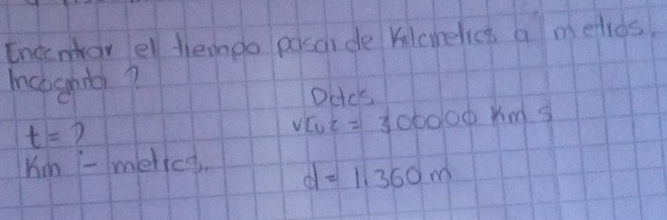 Encontrar el tiempo pasar de Kilometros a metros.
Incognita ?
Datos
t = ?
vluz = 300000 Km s
Km - metros.
d = 11.360 m